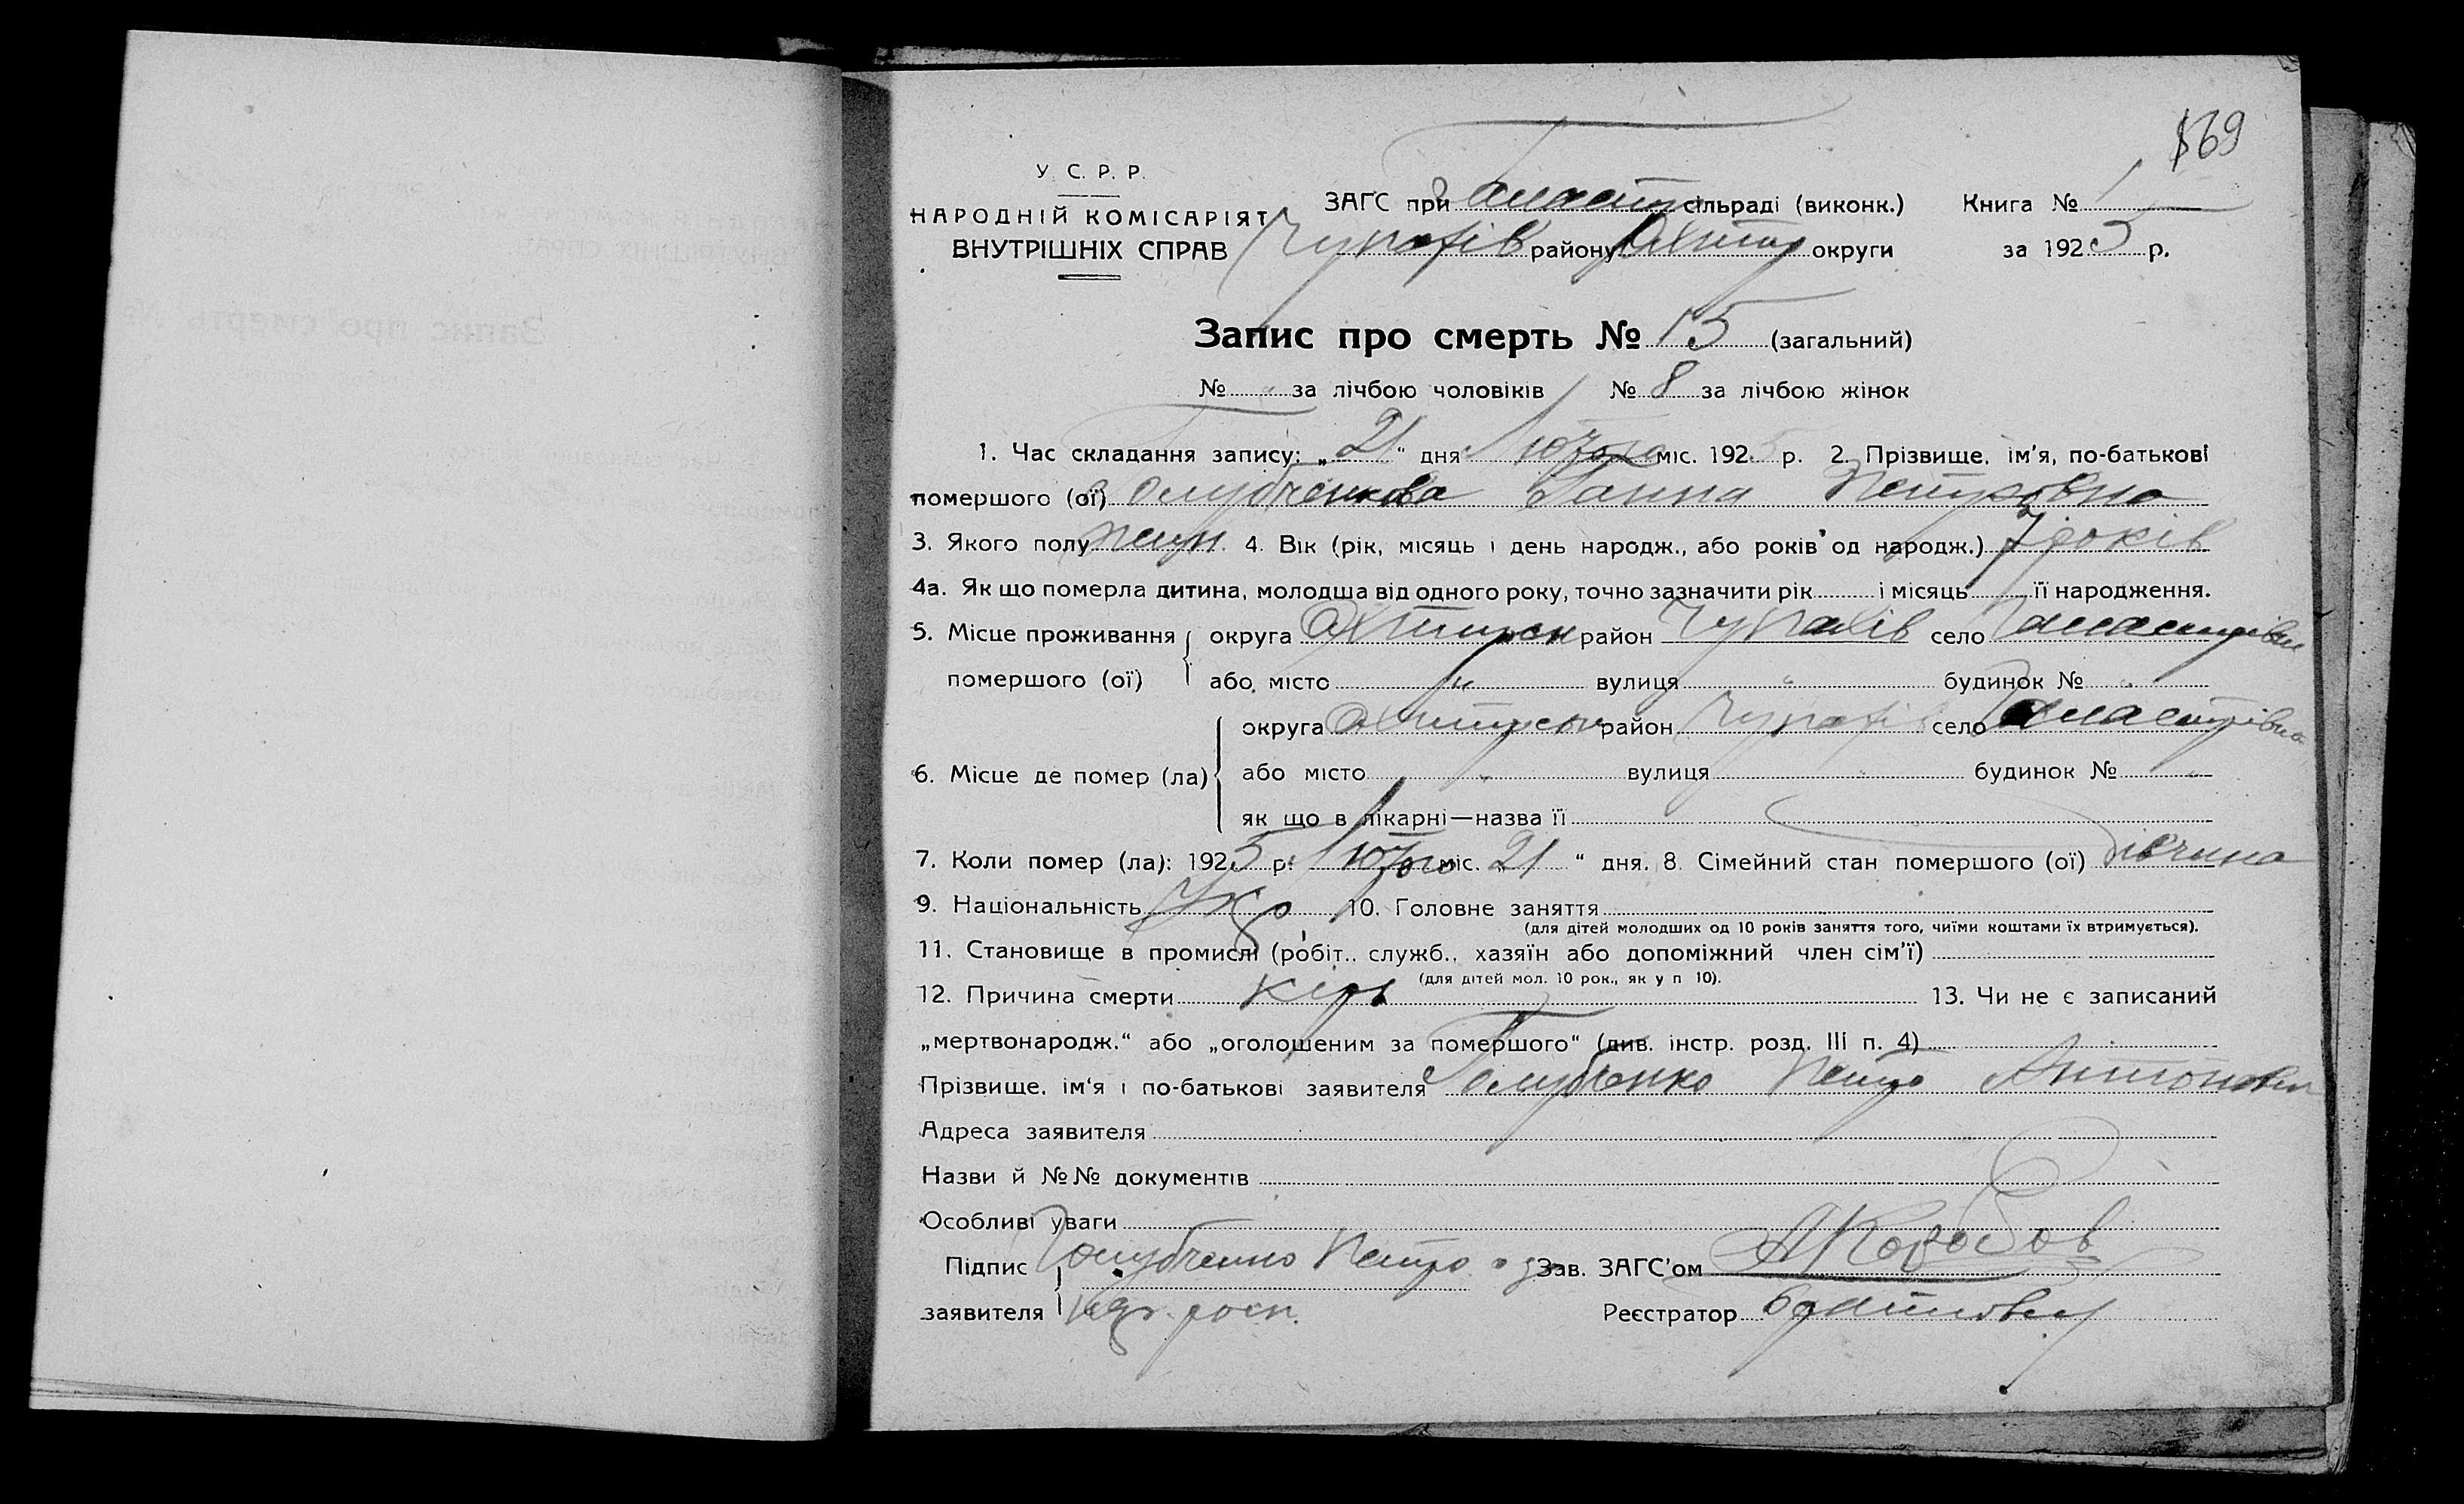 169
У. С. Р. Р.
НАРОДНІЙ КОМІСАРІЯТ
ВНУТРІШНІХ СПРАВ
ЗАГС при сільраді (виконк.) Книга № 1
Чупахів району Охтир округи за 1925 р.
Запис про смерть № 15 (загальний)
№ „ за лічбою чоловіків № 8 за лічбою жінок
1. Час складання запису: „21“ дня Лютого міс. 1925 р. 2. Прізвище, ім'я, по-батькові
помершого (ої) Голубченкова Ганна Петровна
3. Якого полу жін. 4. Вік (рік, місяць і день народж., або років од народж.) 7 років
4а. Як що померла дитина, молодша від одного року, точно зазначити рік і місяць її народження.
5. Місце проживання округа Охтирськ район Чупахів село
помершого (ої) або місто „ вулиця „ будинок № „
округа Охтирськ район Чупахів село
6. Місце де помер (ла) або місто „ вулиця „ будинок № „
як що в лікарні—назва її
7. Коли помер (ла): 1925 р. Лютого міс. 21 “ дня. 8. Сімейний стан помершого (ої) дівчина
9. Національність Укр 10. Головне заняття
(для дітей молодших од 10 років заняття того, чиїми коштами їх втримується).
11. Становище в промислі (робіт., служб., хазяїн або допоміжний член сім'ї)
(для дітей мол. 10 рок., як у п 10).
12. Причина смерти Кір 13. Чи не є записаний
„мертвонародж.“ або „оголошеним за помершого“ (див. інстр. розд. III п. 4)
Прізвище, ім'я і по-батькові заявителя Голубченко Петро Антонович
Адреса заявителя
Назви й №№ документів
Особливі уваги
Підпис Голубченко Петро Зав. ЗАГС'ом АКоробов
заявителя Реєстратор